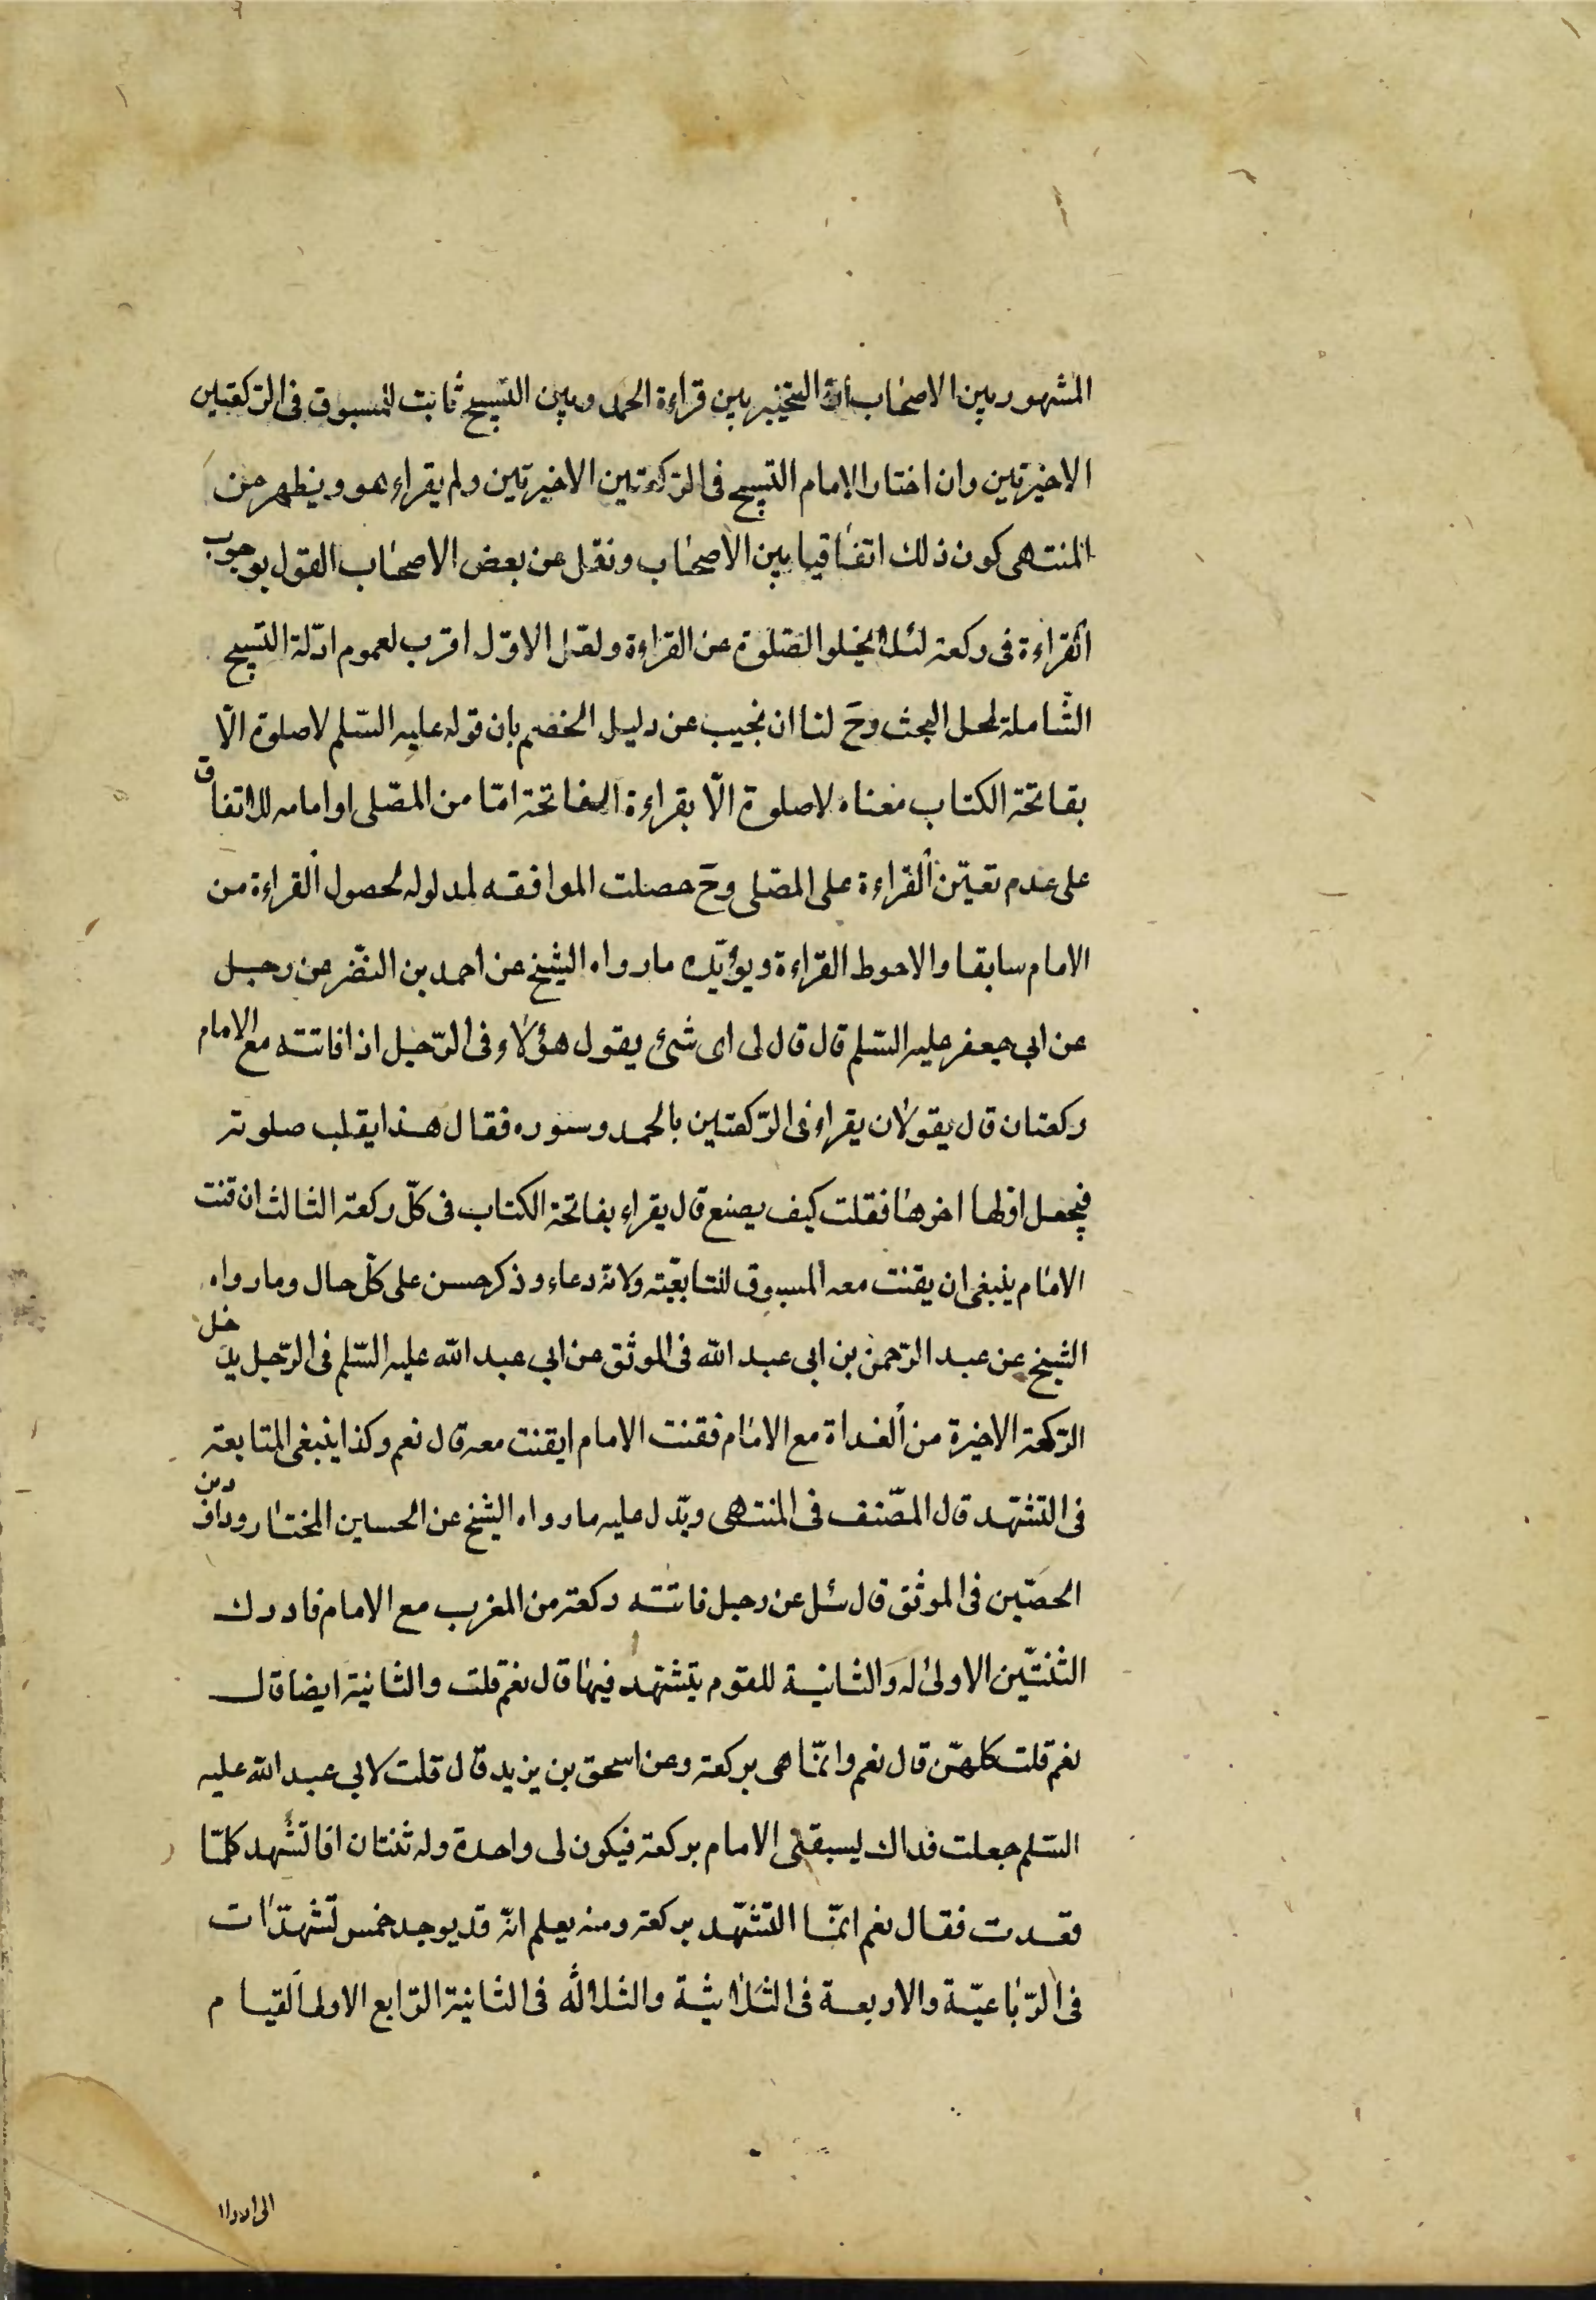 المشهور بين الاصحاب ان التخيير بين قراءة الحمد وبين التسبيح ثابت للمسبوق فى الركعتين
الاخيرتين وان اختار الامام التسبيح فى الركعتين الاخيرتين ولم يقراء هو ويظهر من
المنتهى كون ذلك اتفاقيا بين الاصحاب ونقل عن بعض الاصحاب القول بوجوب
القراءة فى ركعة لئلا يخلو الصلوة عن القراءة ولعل الاول اقرب لعموم ادلة التسبيح
الشاملة لمحل البحث وح لنا ان نجيب عن دليل الخصم بان قوله عليه السلم لا صلوة الا
بفاتحة الكتاب معناه لا صلوة الا بقراءة الفاتحة اما من المصلى او امامه للاتفاق
على عدم تعين القراءة على المصلى وح حصلت الموافقه لمدلوله لحصول القراءة من
الامام سابقا والاحوط القراءة ويؤيده ما رواه الشيخ عن احمد بن النضر عن رجل
عن ابى جعفر عليه السلم قال قال لى اى شئ يقول هؤلاء فى الرجل اذا فاتته مع الامام
ركعتان قال يقولان يقراء فى الركعتين بالحمد وسوره فقال هذا يقلب صلوته
فيجعل اولها اخرها فقلت كيف يصنع قال يقراء بفاتحة الكتاب فى كل ركعة الثالث ان قنت
الامام ينبغى ان يقنت معه المسبوق للتابعيته ولانه دعاء وذكر حسن على كل حال وما رواه
الشيخ عن عبد الرحمن بن ابى عبد الله فى الموثق عن ابى عبد الله عليه السلم فى الرجل يدخل
الركعة الاخيرة من الغداة مع الامام فقنت الامام ايقنت معه قال نعم وكذا ينبغى المتابعة
فى التشهد قال المصنف فى المنتهى ويدل عليه ما رواه الشيخ عن الحسين المختار وداود بن
الحصين فى الموثق قال سئل عن رجل فاتته ركعة من المغرب مع الامام فادرك
الثنتين الاولى له والثانية للقوم يتشهد فيها قال نعم قلت والثانية ايضا قال
نعم قلت كلهن قال نعم وانما هى بركعة وعن اسحق بن يزيد قال قلت لابى عبد الله عليه
السلم جعلت فداك ليسبقنى الامام بركعة فيكون لى واحدة وله ثنتان افاتشهد كلما
قعدت فقال نعم انما التشهد بركعة ومنه يعلم انه قد يوجد خمس تشهدات
فى الرباعية والاربعة فى الثلاثية والثلاثه فى الثانية الرابع الاولى القيام